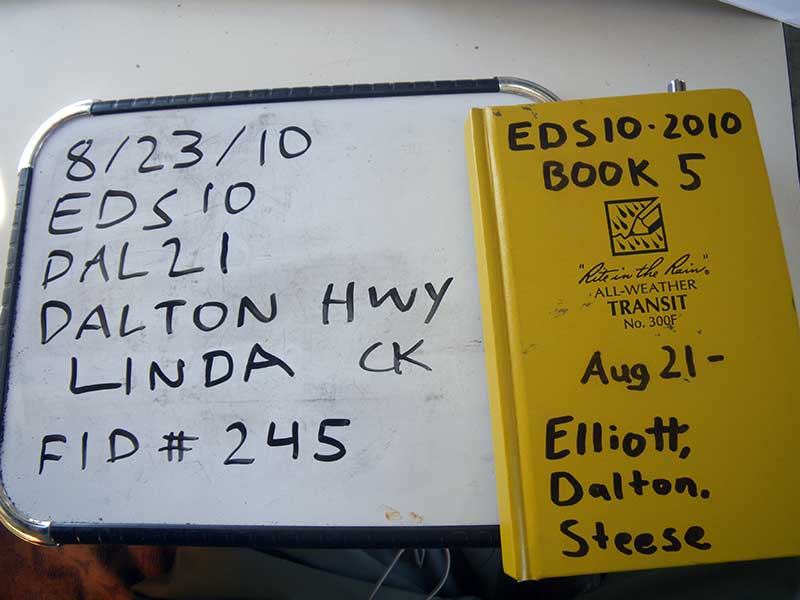 8/23/10
EDS10
DAL21
DALTON HWY
LINDA CK
FID # 245
EDS10·2010
BOOK 5
"Rite in the Rain"®
ALL-WEATHER
TRANSIT
No. 300F
Aug 21-
Elliott,
Dalton.
Steese